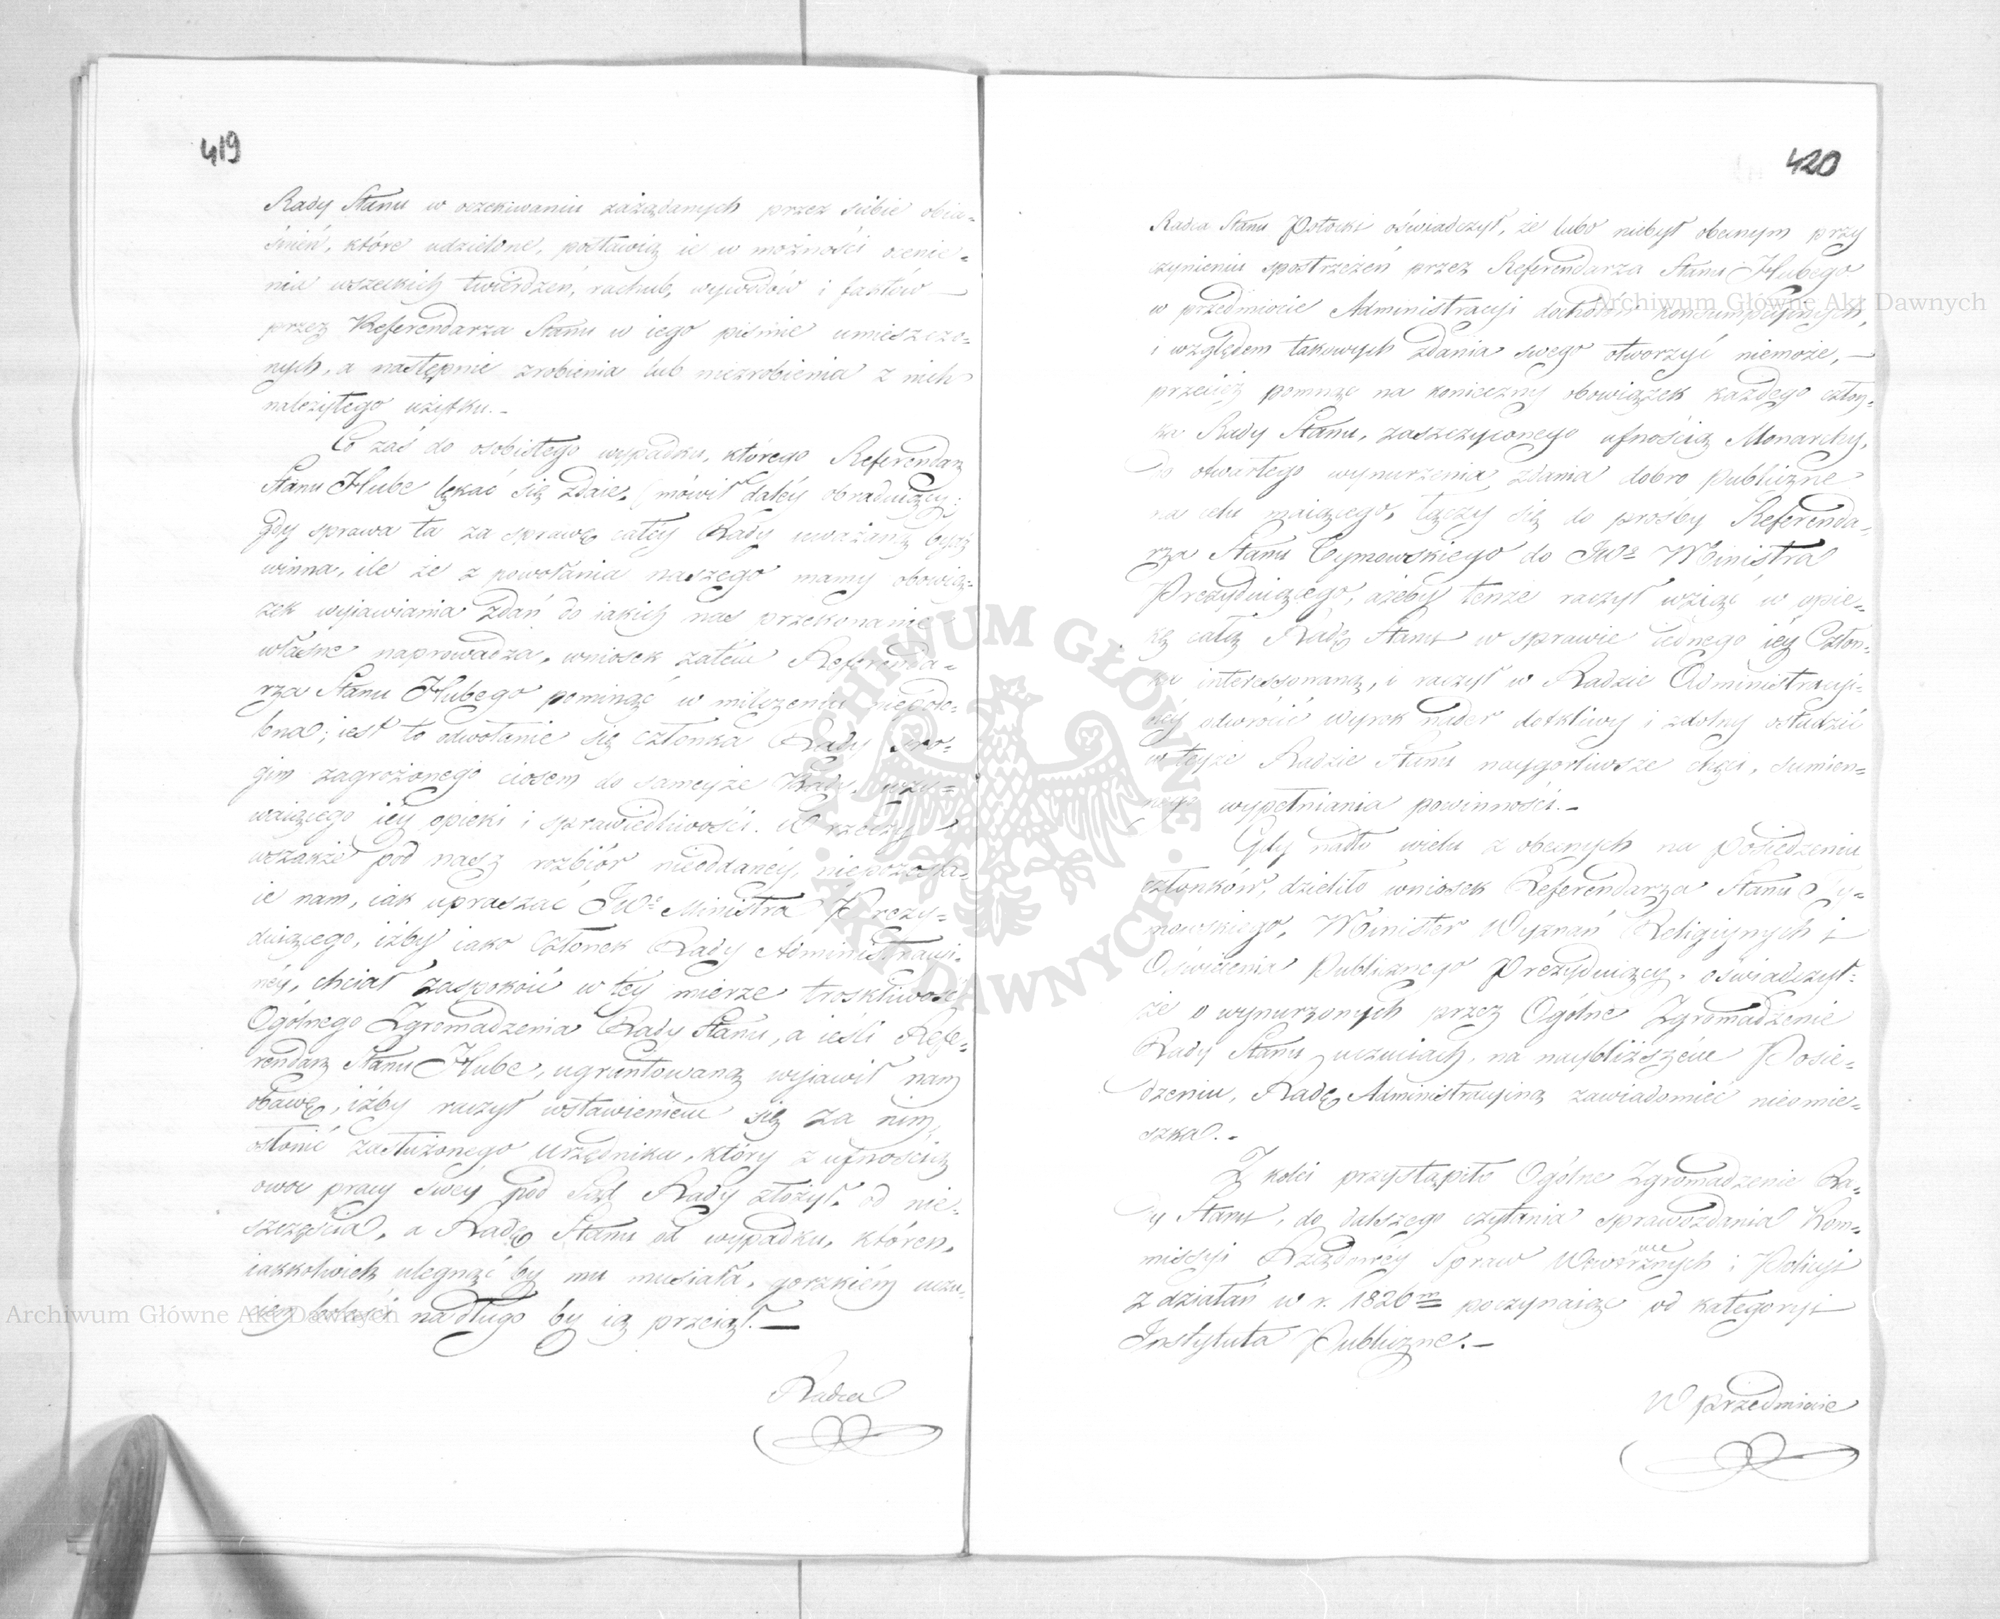 419
Rady Stanu w oczekiwaniu zażądanych przez siebie obia-
śnień, które udzielone, postawią ie w możności ocenie-
nia wszelkich twierdzeń, rachub, wywodów i faktów
przez Referendarza Stanu w iego piśmie umieszczo-
nych, a następnie zrobienia lub niezrobienia z nich
należytego użytku.-
Co zaś do osobistego wypadku, którego Referendarz
Stanu Hube lękać się zdaie, (mówił daléy obraduiący)
gdy sprawa ta za sprawę całéy Rady uważaną bydź
winna, ile że z powołania naszego mamy obowią-
zek wyiawiania zdań do iakich nas przekonanie
własne naprowadza, wniosek zatém Referenda-
rza Stanu Hubego pominąć w milczeniu niepodo-
bna; iest to odwołanie się członka Rady sro-
gim zagrożonego ciosem do saméyże Rady, wzy-
waiącego iéy opieki i sprawiedliwości. W rzeczy
wszakże pod nasz rozbiór nieoddanéy, niepozosta-
ie nam, iak upraszać JWo Ministra Prezy-
duiącego, iżby iako Członek Rady Administracyi-
néy, chciał zaspokoić w téy mierze troskliwość
Ogólnego Zgromadzenia Rady Stanu, a ieśli Refe-
rendarz Stanu Hube, ugruntowaną wyiawił nam
obawę, iżby raczył wstawieniem się za nim,
osłonić zasłużonego urzędnika, który z ufnością
owoc pracy swéy pod Sąd Rady złożył, od nie-
szczęścia, a Radę Stanu od wypadku, któren,
iakkolwiek ulegnąć by mu musiała, gorzkiém uczu-
ciem boleści na długo by ią przeiął.-
Radca
420
Radca Stanu Potocki oświadczył, że lubo niebył obecnym przy
czynieniu spostrzeżeń przez Referendarza Stanu Hubego
w przedmiocie Administracyi dochodów konsumpcyinych,
i względem takowych zdania swego otworzyć niemoże,-
przecież pomnąc na konieczny obowiązek każdego człon-
ka Rady Stanu, zaszczyconego ufnością Monarchy,
do otwartego wynurzenia zdania dobro Publiczne
na celu maiącego, łączy się do prośby Referenda-
rza Stanu Tymowskiego do JWo Ministra
Prezyduiącego, ażeby tenże raczył wziąć w opie-
kę całą Radę Stanu w sprawie iednego iéy Człon-
ka interessowaną, i raczył w Radzie Administracyi-
néy odwrócić wyrok nader dotkliwy i zdolny ostudzić
w téyże Radzie Stanu naygorliwsze chęci, sumien-
nego wypełniania powinności.-
Gdy nadto wielu z obecnych na Posiedzeniu
członków, dzieliło wniosek Referendarza Stanu Ty-
mowskiego, Minister Wyznań Religiynych i
Oświecenia Publicznego Prezyduiący, oświadczył:
że o wynurzonych przez Ogólne Zgromadzenie
Rady Stanu uczuciach, na naybliższém Posie-
dzeniu, Radę Administracyiną zawiadomić nieomie-
szka.-
Z kolei przystąpiło Ogólne Zgromadzenie Ra-
dy Stanu, do dalszego czytania sprawozdania Kom-
missyi Rządowéy Spraw Wewnętrznych i Policyi
z działań w r. 1826m poczynaiąc od kategoryi
Instytuta Publiczne.-
W przedmiocie
Archiwum Główne Akt Dawnych
Archiwum Główne Akt Dawnych
ARCHIWUM GŁÓWNE
AKT DAWNYCH